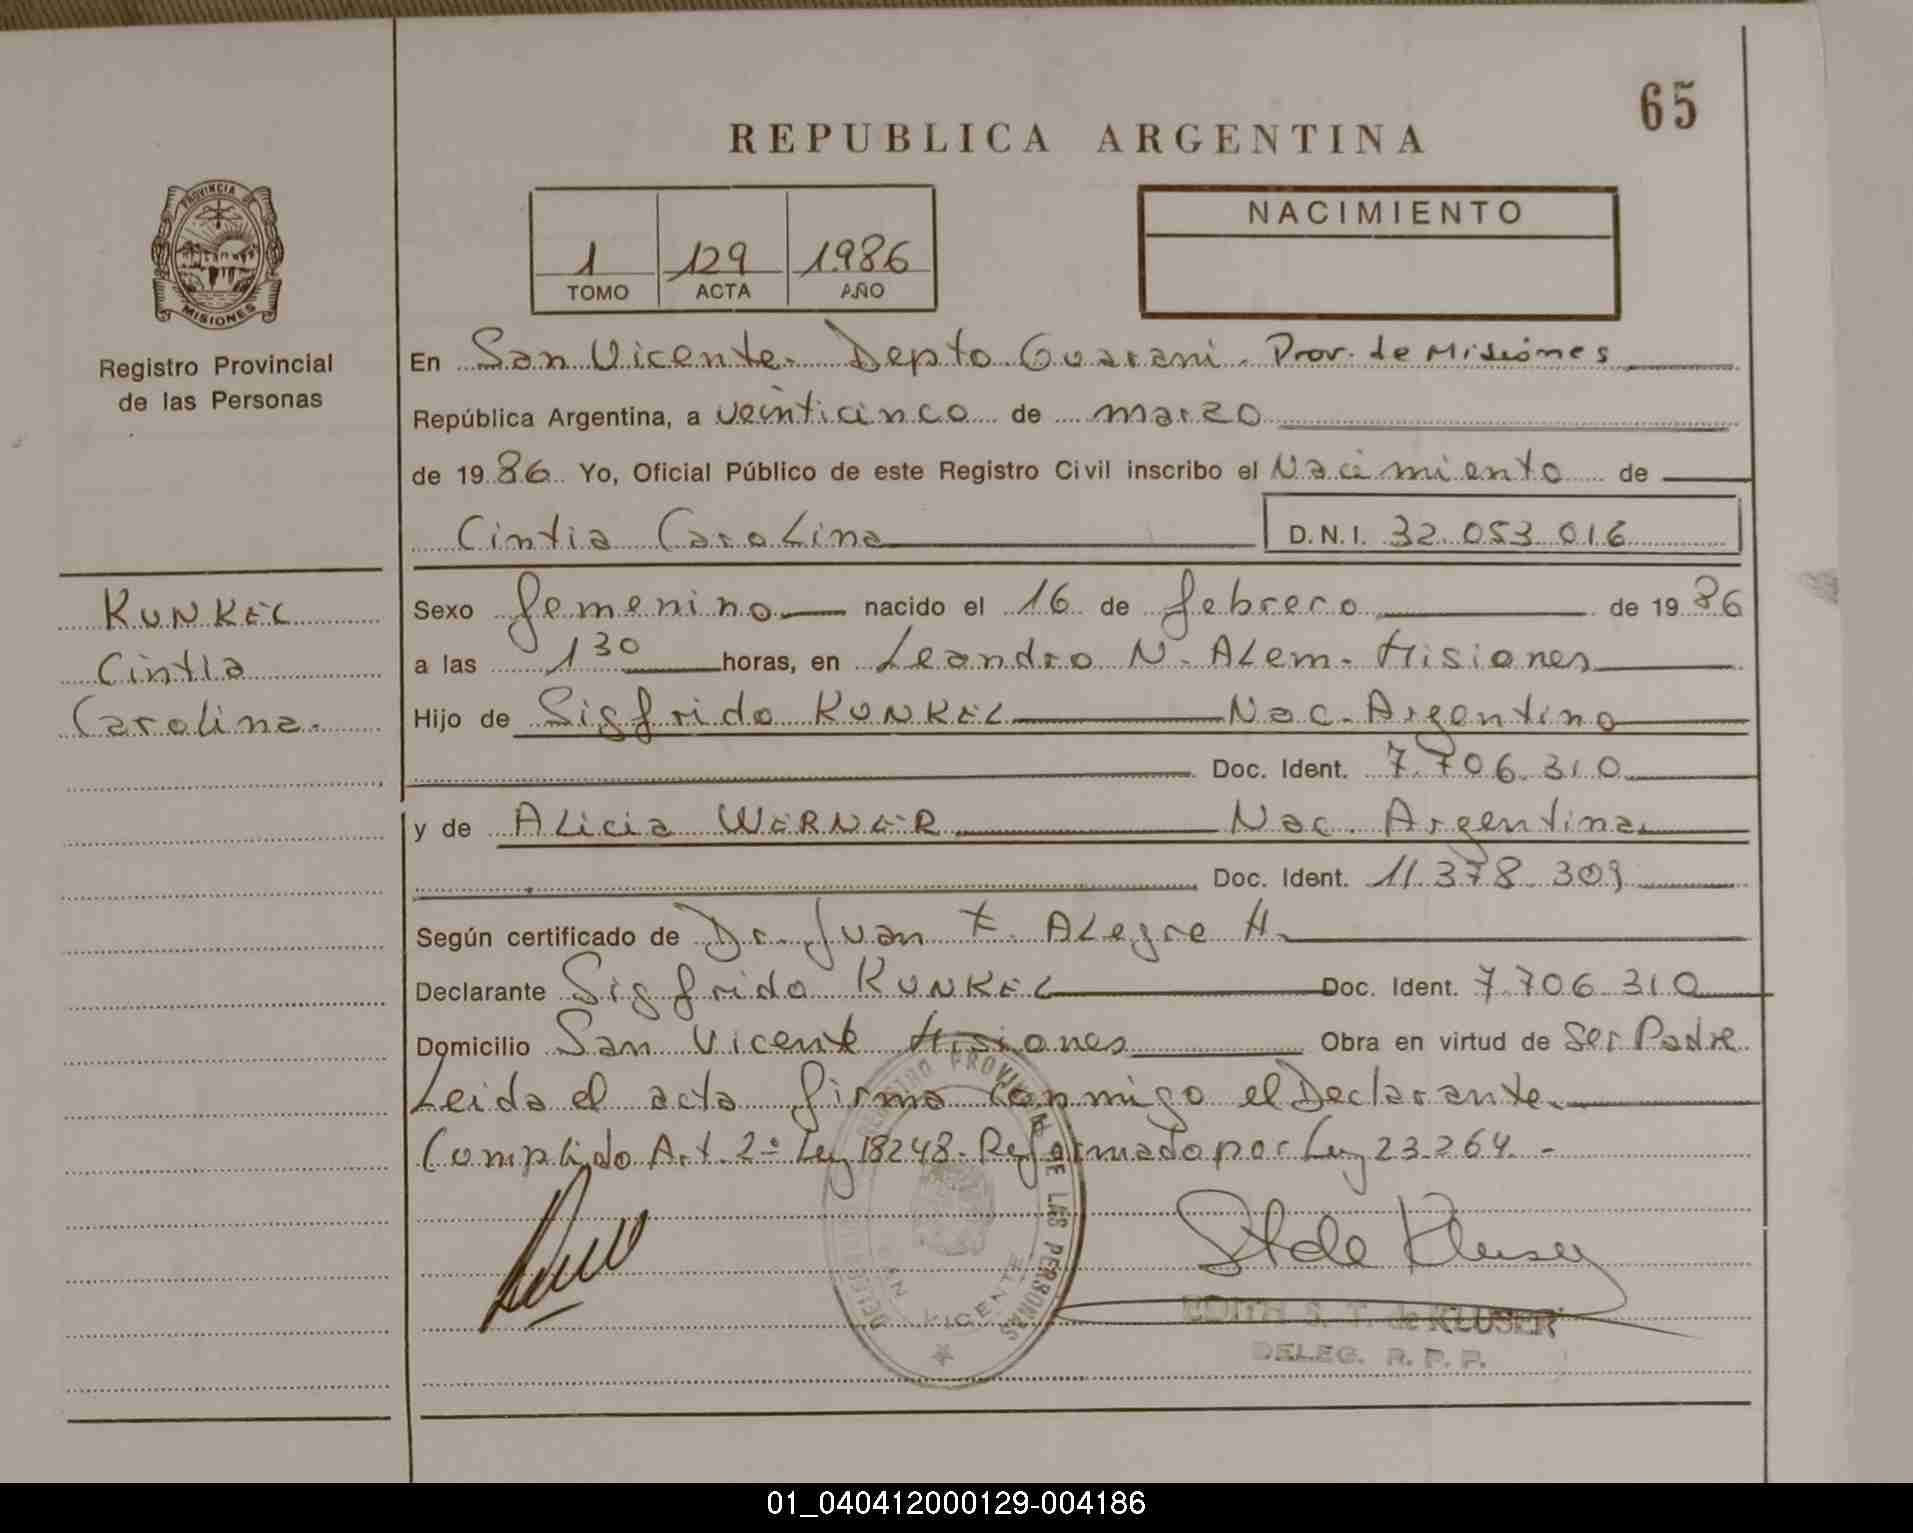 65
REPUBLICA ARGENTINA
PROVINCIA DE
MISIONES
Registro Provincial
de las Personas
1 129 1986
TOMO ACTA AÑO
NACIMIENTO
En San Vicente. Depto Guarani. Prov. de Misiones
República Argentina, a veinticinco de marzo
de 1986. Yo, Oficial Público de este Registro Civil inscribo el Nacimiento de
Cintia Carolina D.N.I. 32.053.016
KUNKEL
Cintia
Carolina.
Sexo femenino nacido el 16 de febrero de 1986
a las 1 30 horas, en Leandro N. Alem. Misiones
Hijo de Sigfrido KUNKEL Nac. Argentino
Doc. Ident. 7.706.310
y de Alicia WERNER Nac. Argentina
Doc. Ident. 11.378.309
Según certificado de Dr. Juan F. Alegre H.
Declarante Sigfrido KUNKEL Doc. Ident. 7.706.310
Domicilio San Vicente Misiones Obra en virtud de Ser Padre
Leida el acta firma conmigo el Declarante.
Cumplido Art. 2º Ley 18248. Reformado por Ley 23.264. -
REGISTRO PROVINCIAL DE LAS PERSONAS
SAN VICENTE
EDITH S. T. de KLUSER
DELEG. R. P. P.
01_040412000129-004186